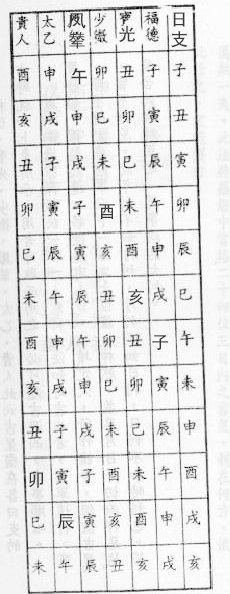 日支 子 丑 寅 卯 辰 巳 午 未 申 酉 戌 亥
福德 子 寅 辰 午 申 戌 子 寅 辰 午 申 戌
寶光 丑 卯 巳 未 酉 亥 丑 卯 己 未 酉 亥
少微 卯 巳 未 酉 亥 丑 卯 巳 未 酉 亥 丑
鳳輦 午 申 戌 子 寅 辰 午 申 戌 子 寅 辰
太乙 申 戌 子 寅 辰 午 申 戌 子 寅 辰 午
貴人 酉 亥 丑 卯 巳 未 酉 亥 丑 卯 巳 未